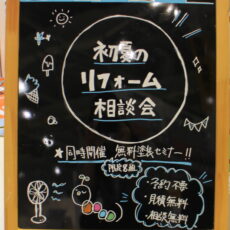 初夏の
リフォーム
相談会
★同時開催 無料塗装セミナー!!
・予約不要
・見積無料
・相談無料